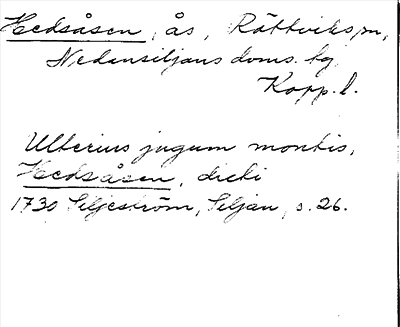 Hedsåsen, ås, Rättviks sn,
Nedansiljans doms. tg
Kopp. l.
Ulterius jugum montis,
Hedsåsen, dicti
1730 Seljeström, Seljan, s. 26.